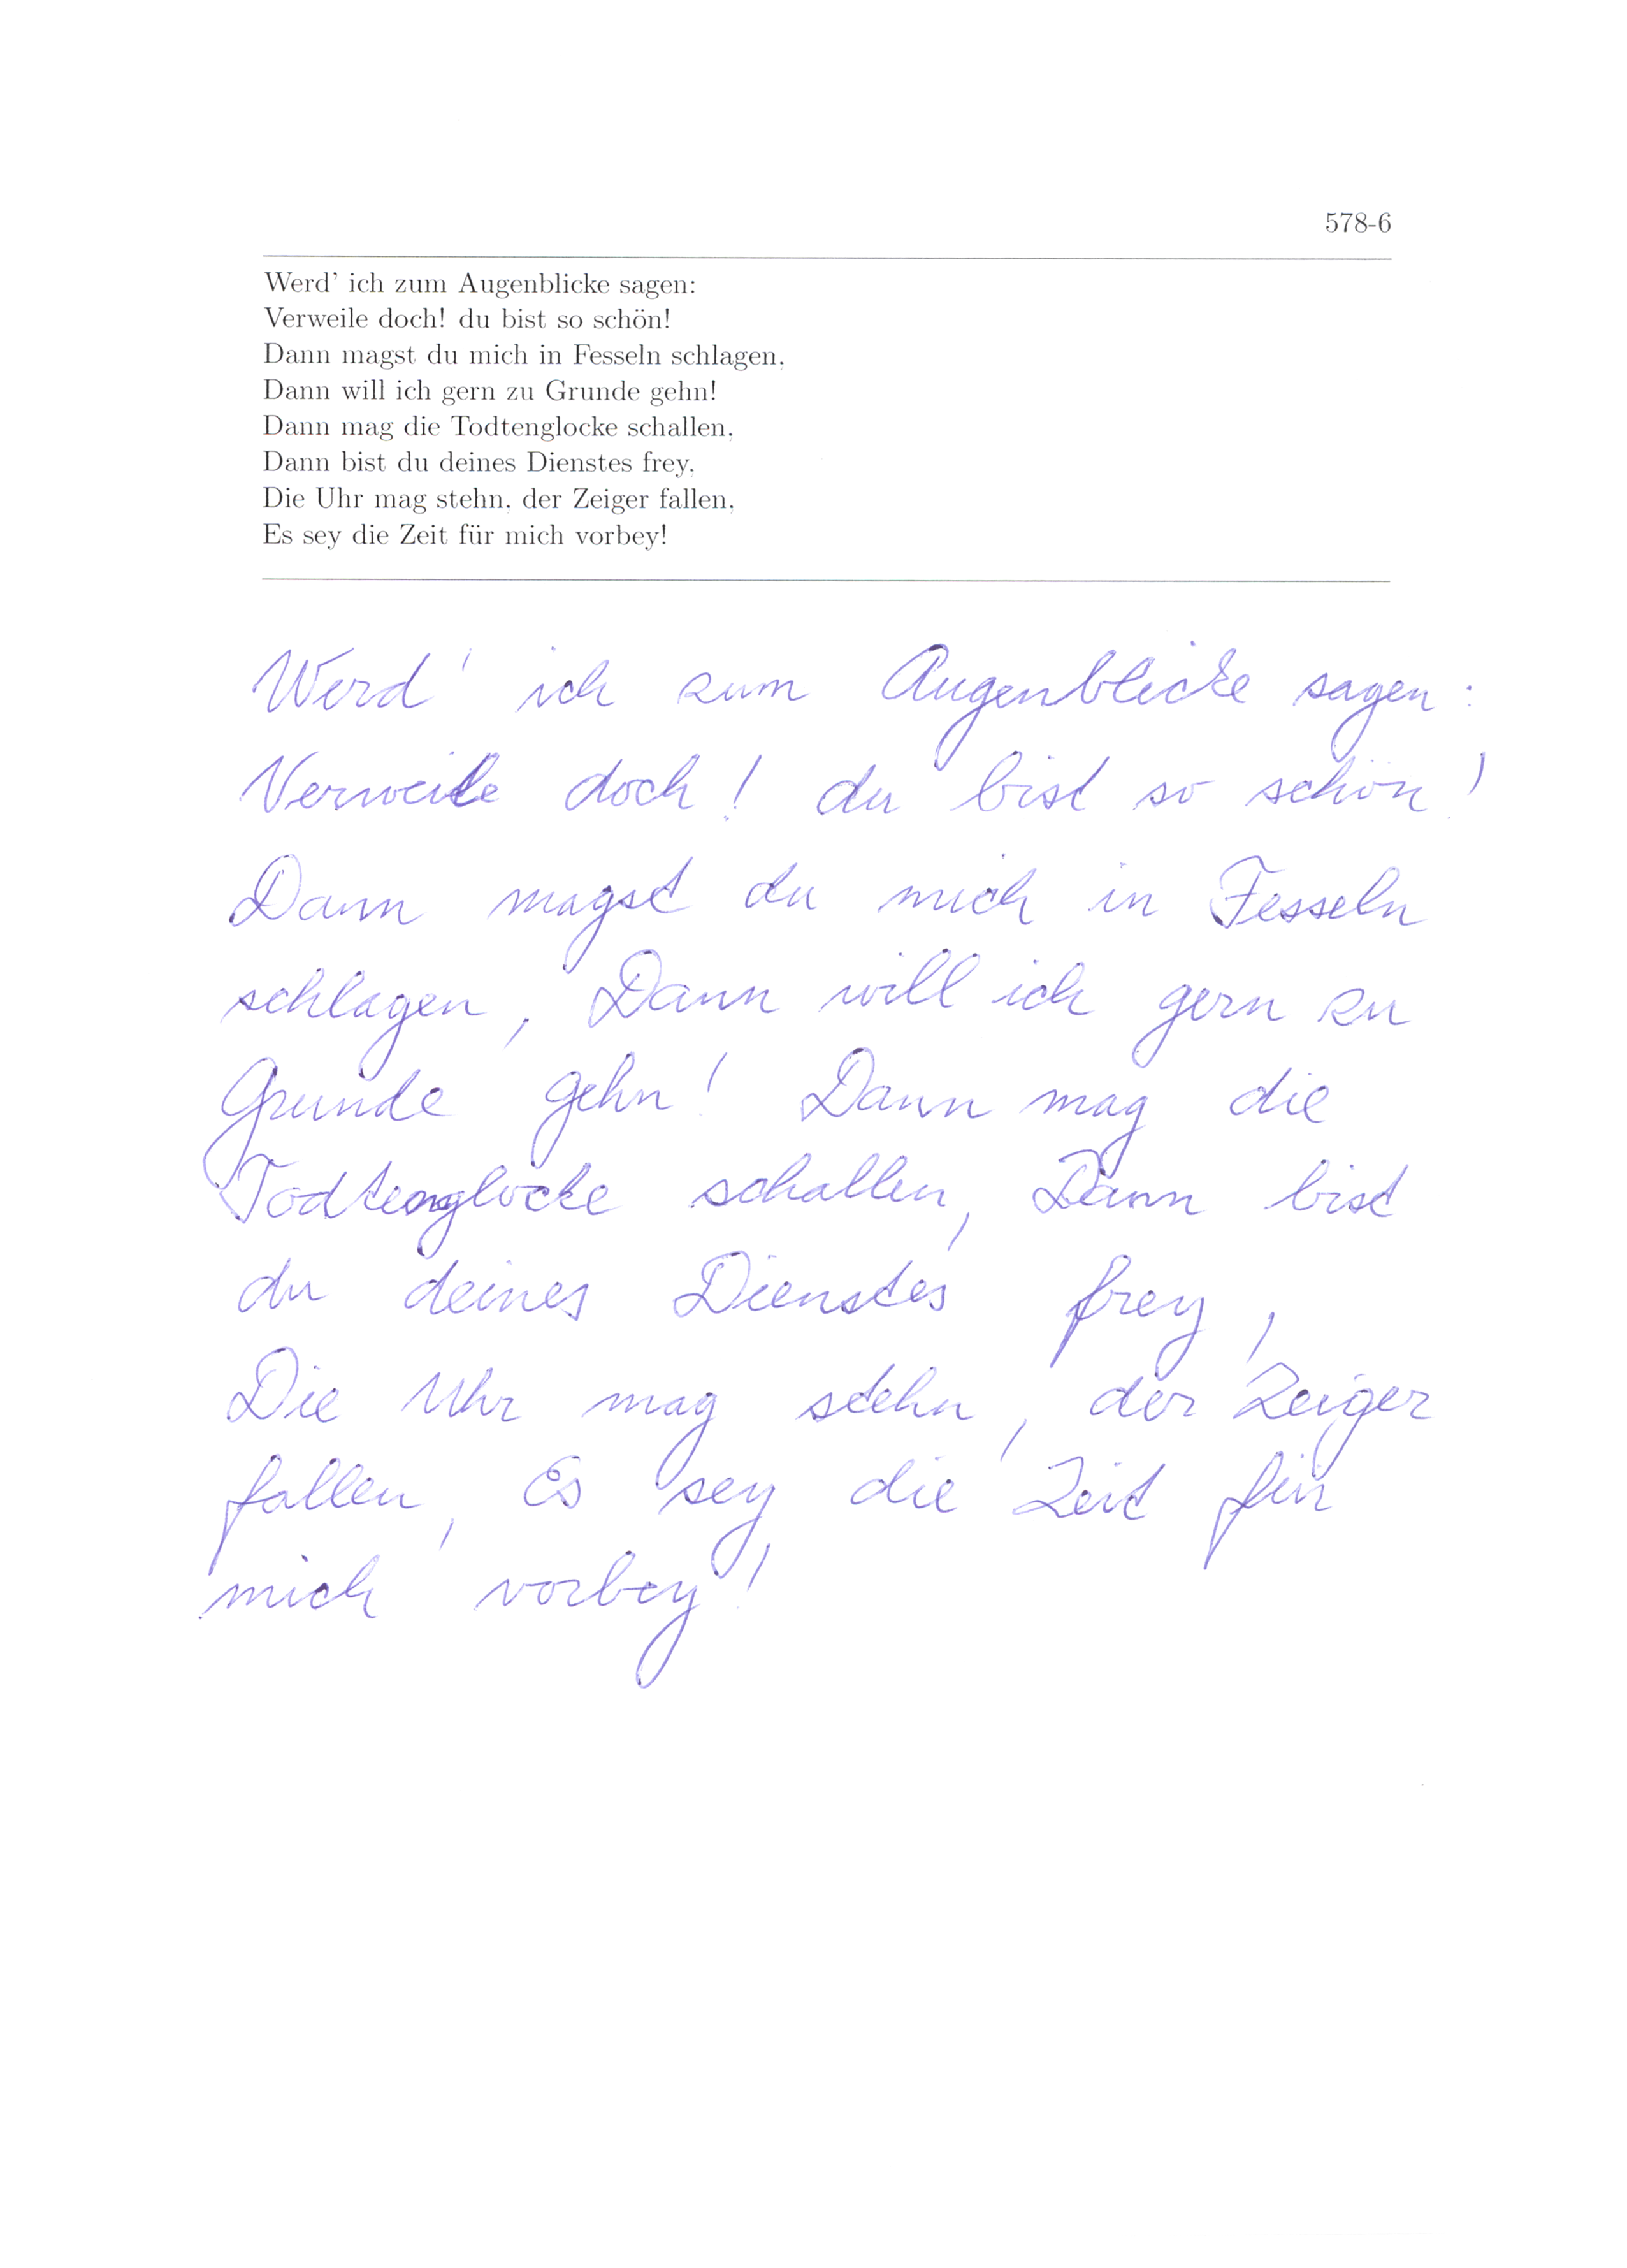 578-6
Werd' ich zum Augenblicke sagen:
Verweile doch! du bist so schön!
Dann magst du mich in Fesseln schlagen,
Dann will ich gern zu Grunde gehn!
Dann mag die Todtenglocke schallen,
Dann bist du deines Dienstes frey,
Die Uhr mag stehn, der Zeiger fallen,
Es sey die Zeit für mich vorbey!
Werd' ich zum Augenblicke sagen:
Verweile doch! du bist so schön!
Dann magst du mich in Fesseln
schlagen, Dann will ich gern zu
Grunde gehn! Dann mag die
Todtenglocke schallen, Dann bist
du deines Dienstes frey,
Die Uhr mag stehn, der Zeiger
fallen, Es sey die Zeit für
mich vorbey!